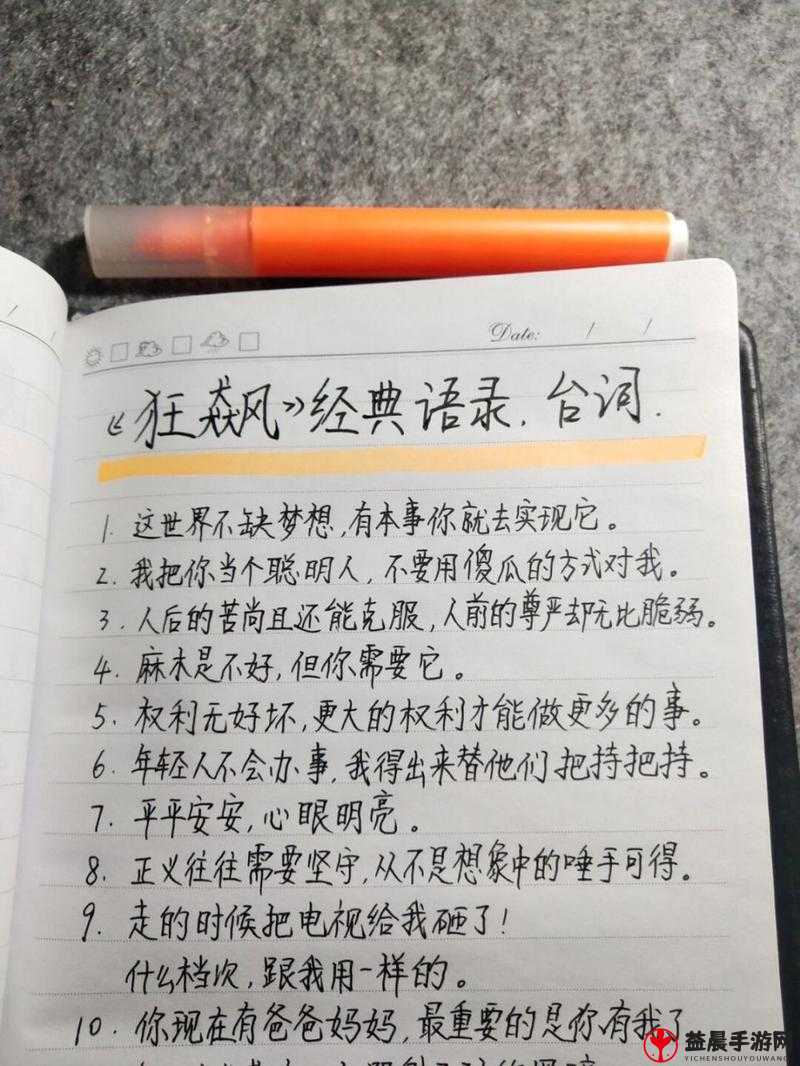 Date: / /
《狂飙》经典语录.台词.
1. 这世界不缺梦想,有本事你就去实现它。
2. 我把你当个聪明人,不要用傻瓜的方式对我。
3. 人后的苦尚且还能克服,人前的尊严却无比脆弱。
4. 麻木是不好,但你需要它。
5. 权利无好坏,更大的权利才能做更多的事。
6. 年轻人不会办事,我得出来替他们把持把持。
7. 平平安安,心眼明亮。
8. 正义往往需要坚守,从不是想象中的唾手可得。
9. 走的时候把电视给我砸了!
什么档次,跟我用一样的。
10. 你现在有爸爸妈妈,最重要的是你有我了
益晨手游网
YICHENSHOUYOUWANG